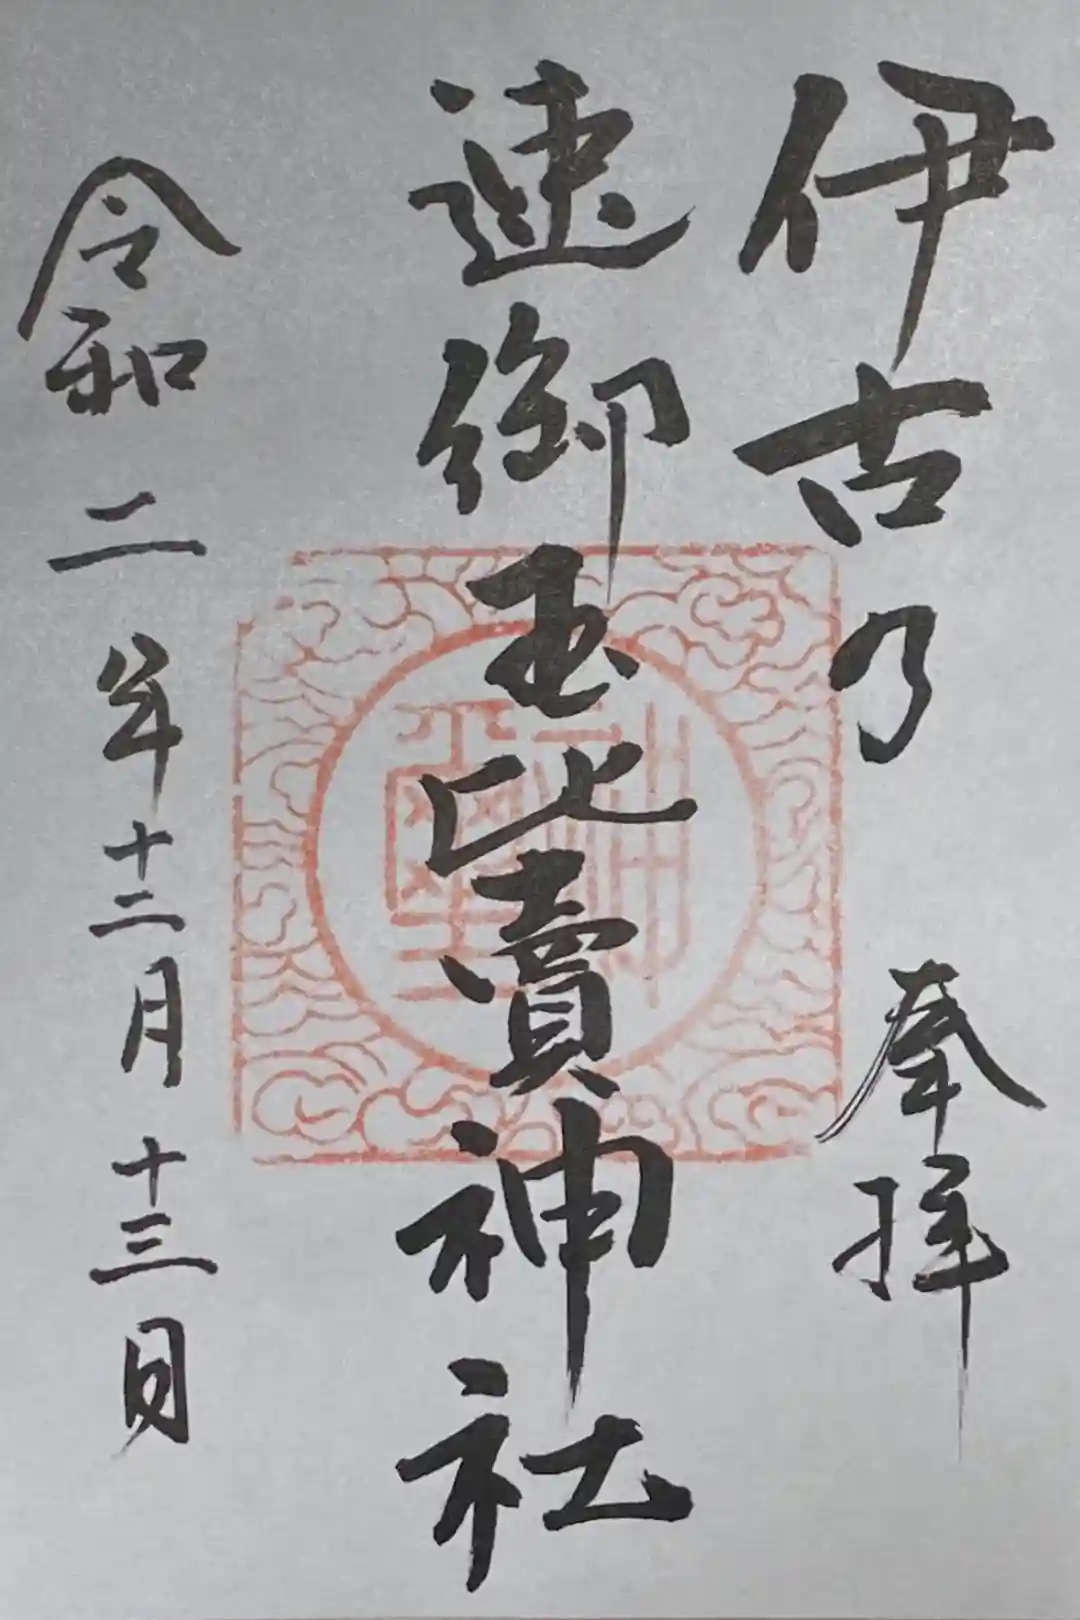 伊古乃
奉拝
速御玉比賣神社
令和二年十二月十三日